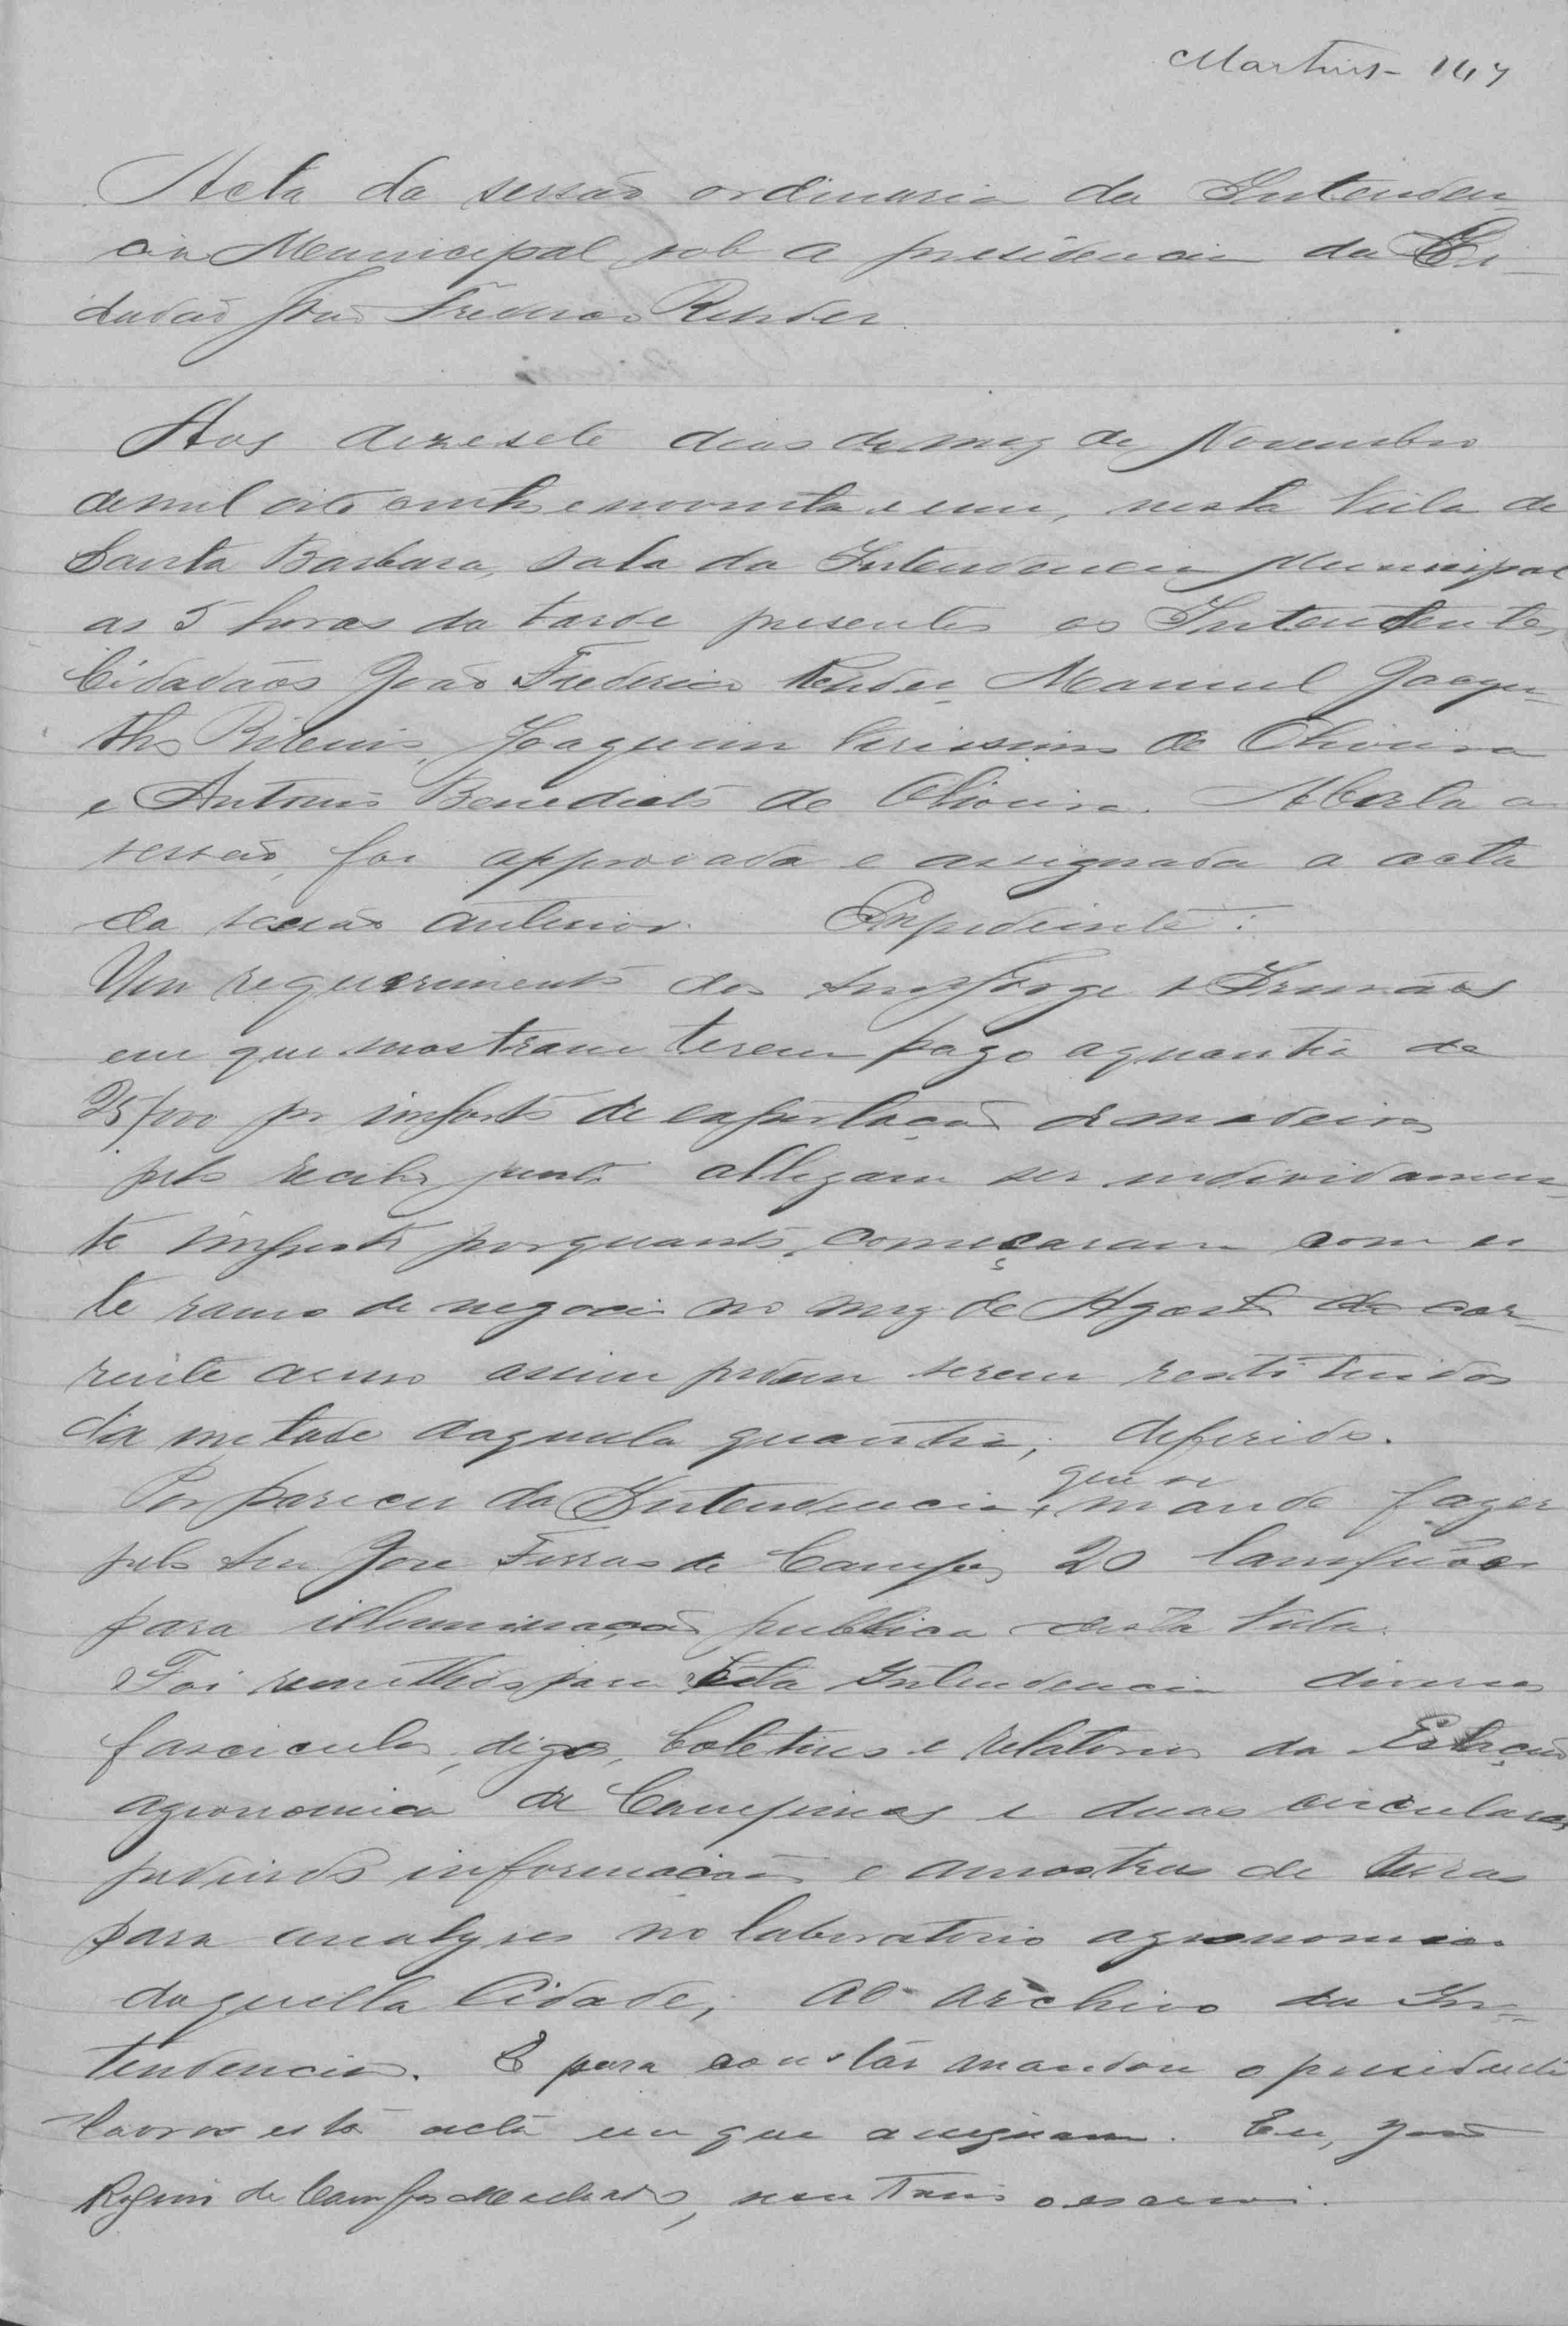 Martins - 147
Acta da sessão ordinaria da Intenden
cia Municipal sob a presidencia do Ci-
dadão João Frederico Rehder
Aos dezesete dias do mez de Novembro
de mil oito centos e noventa e um, nesta Villa de
Santa Barbara, sala da Intendencia Municipal
as 5 horas da tarde presentes os Intendentes
Cidadãos João Frederico Rehder, Manuel
Ribeiro, Joaquim Verissimo de Oliveira
e Antonio Benedicto de Oliveira. Aberta a
sessão, foi approvada e assignada a acta
da sessão anterior. Expediente:
Um requerimento dos Snrs Jorge & Irmãos
em que mostram terem pago a quantia de
25/000 por imposto de exportação de madeiras
pelo recibo junto allegam ser individamen-
te imposto porquanto, começaram com es
te ramo de negocio no mez de Agosto do cor-
rente anno assim pedem serem restituidos
da metade daquella quantia; deferido.
Por parecer da Intendencia, que se mande fazer
pelo Snr José Ferras de Campos 20 lampiões
para illuminação publica desta Villa.
Foi remettidos para esta Intendencia diversos
fasciculos, digo, boletins e relatorios da Estação
agronomica de Campinas e duas circulares
pedindo informações e amostras de terras
para analyses no laboratorio agronomico
daquella Cidade; ao archivo da In-
tendencia. E para constar mandou o presidente
lavrar esta acta em que assignam. Eu, João
de Campos Machado, secretario o escrevi.